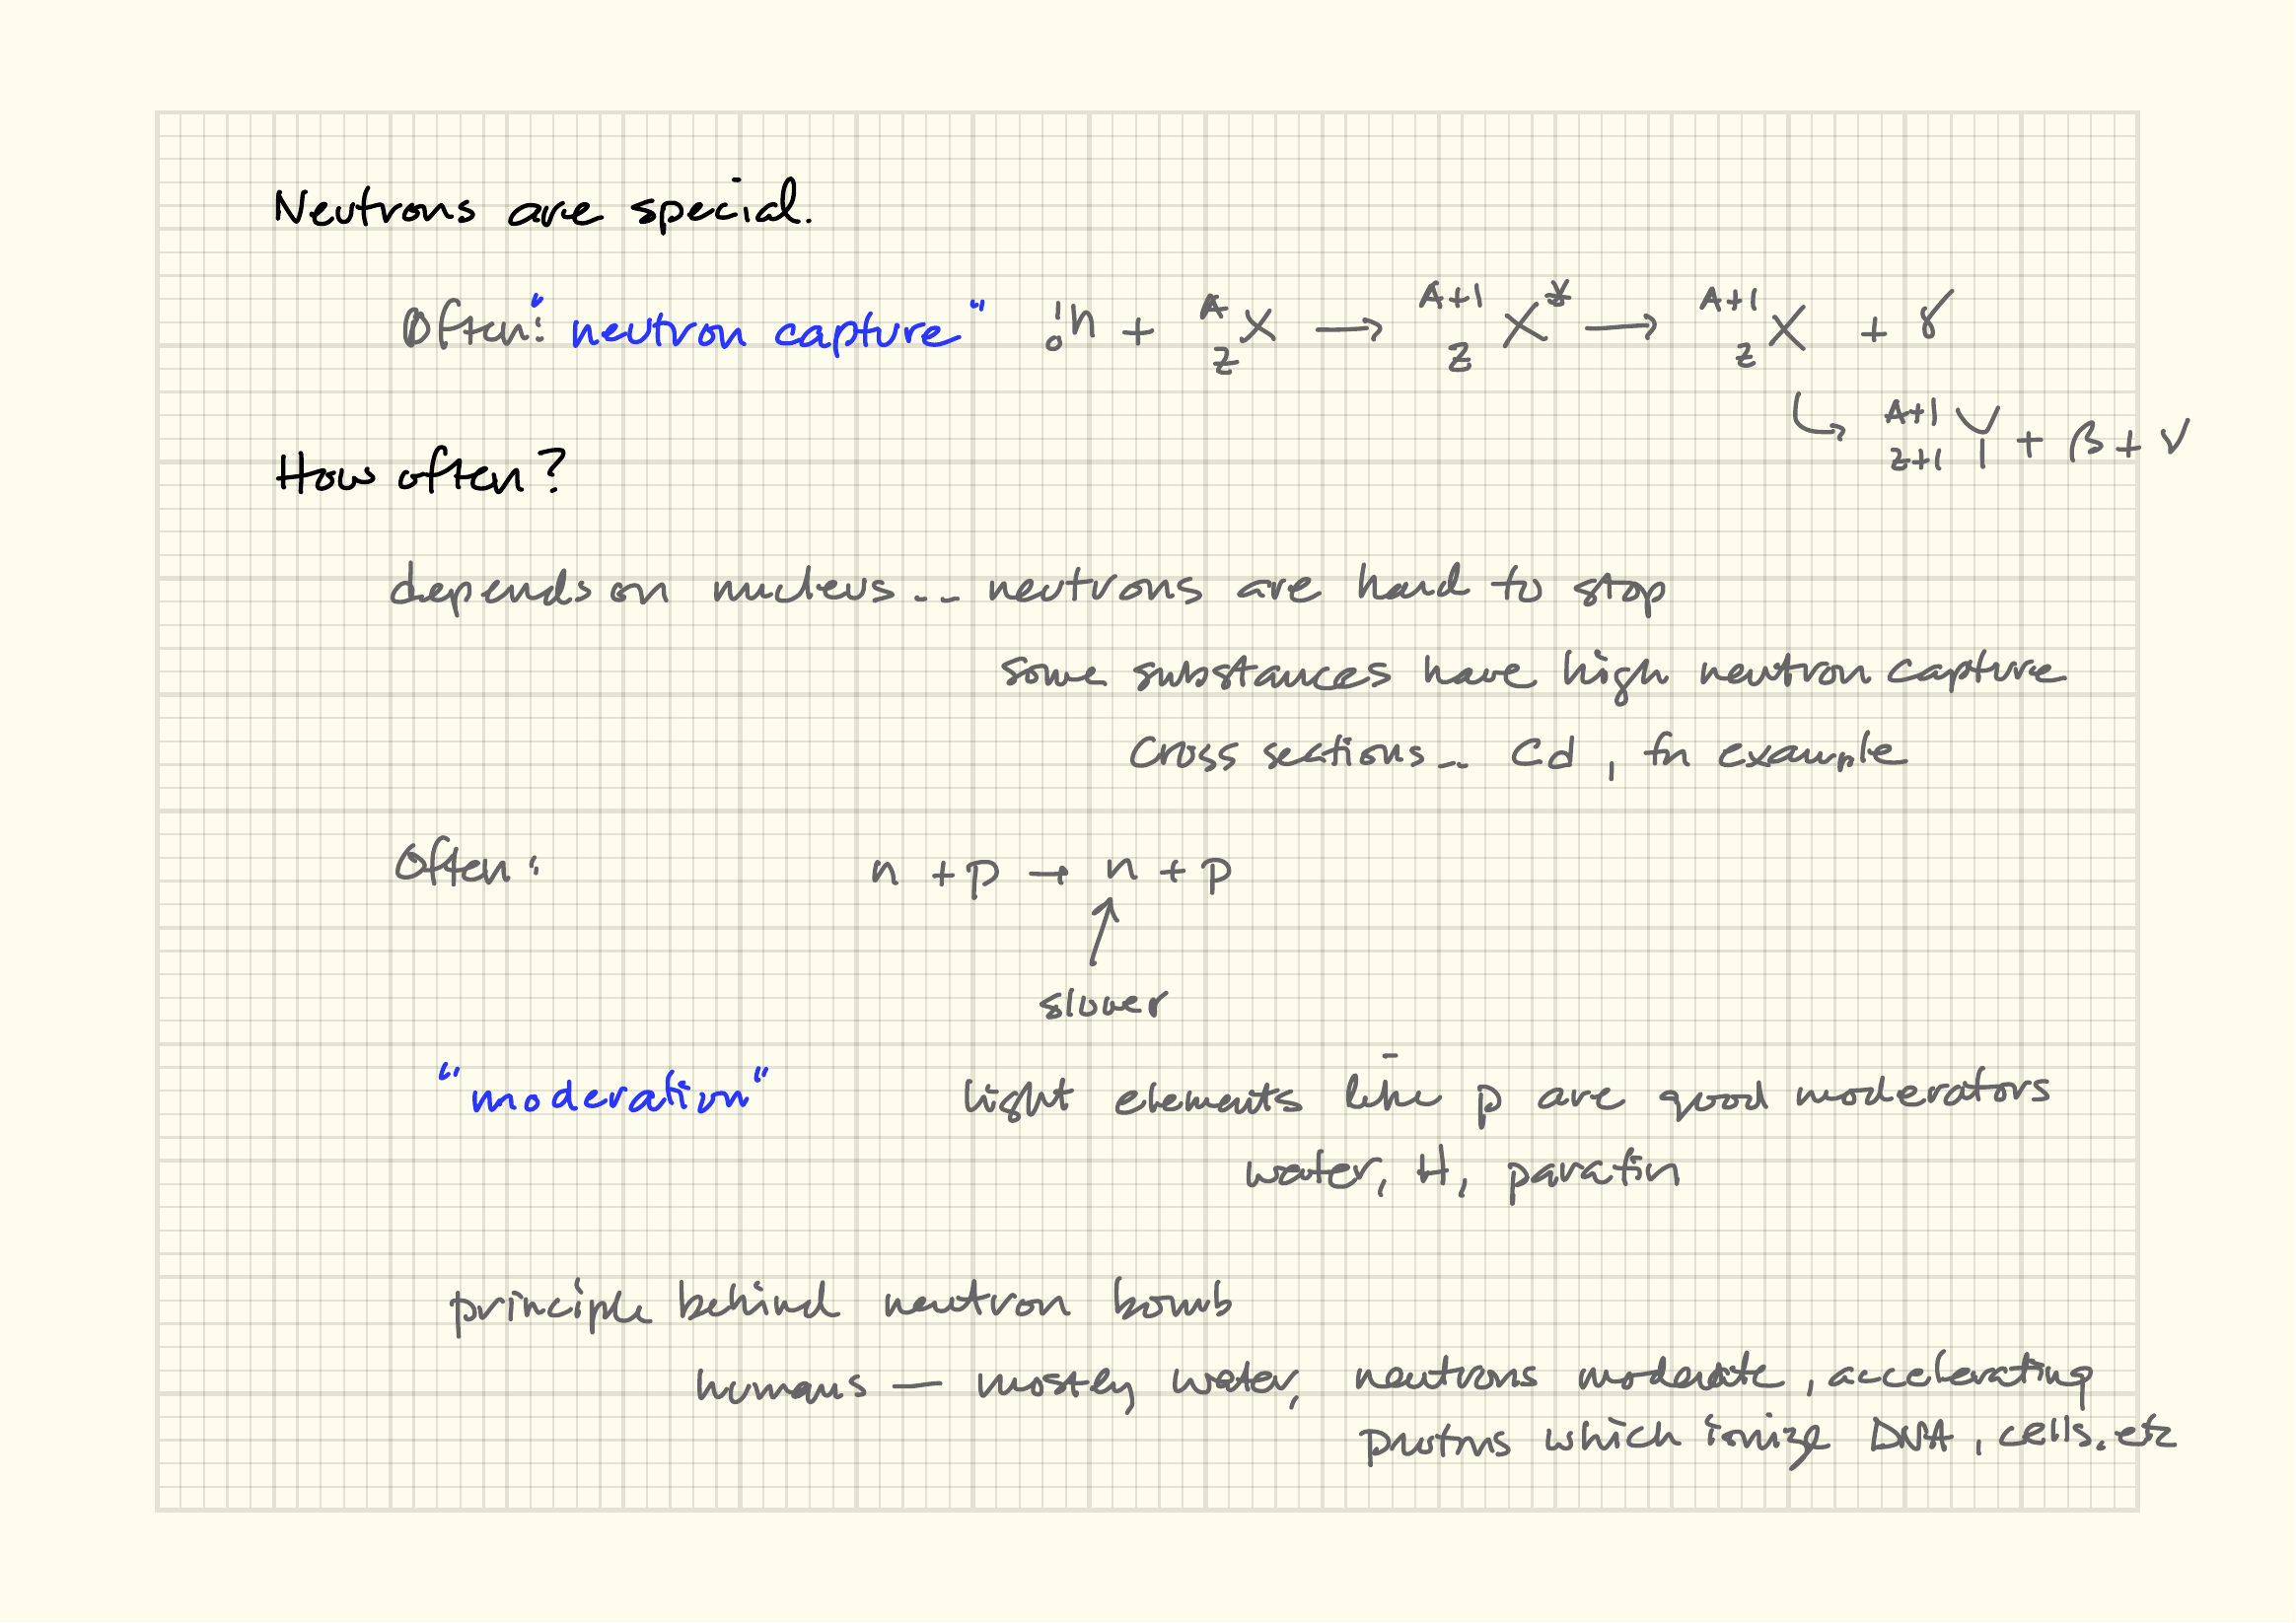 Neutrons are special.
Often: "neutron capture" ¹₀n + ᴬ_Z X → ᴬ⁺¹_Z X* → ᴬ⁺¹_Z X + γ
↳ ᴬ⁺¹_Z+1 Y + β + ν
How often?
depends on nucleus... neutrons are hard to stop
some substances have high neutron capture
cross sections... Cd, for example
Often: n + p → n + p
↑
slower
"moderation" light elements like p are good moderators
water, H, parafin
principle behind neutron bomb
humans — mostly water, neutrons moderate, accelerating
protons which ionize DNA, cells, etc